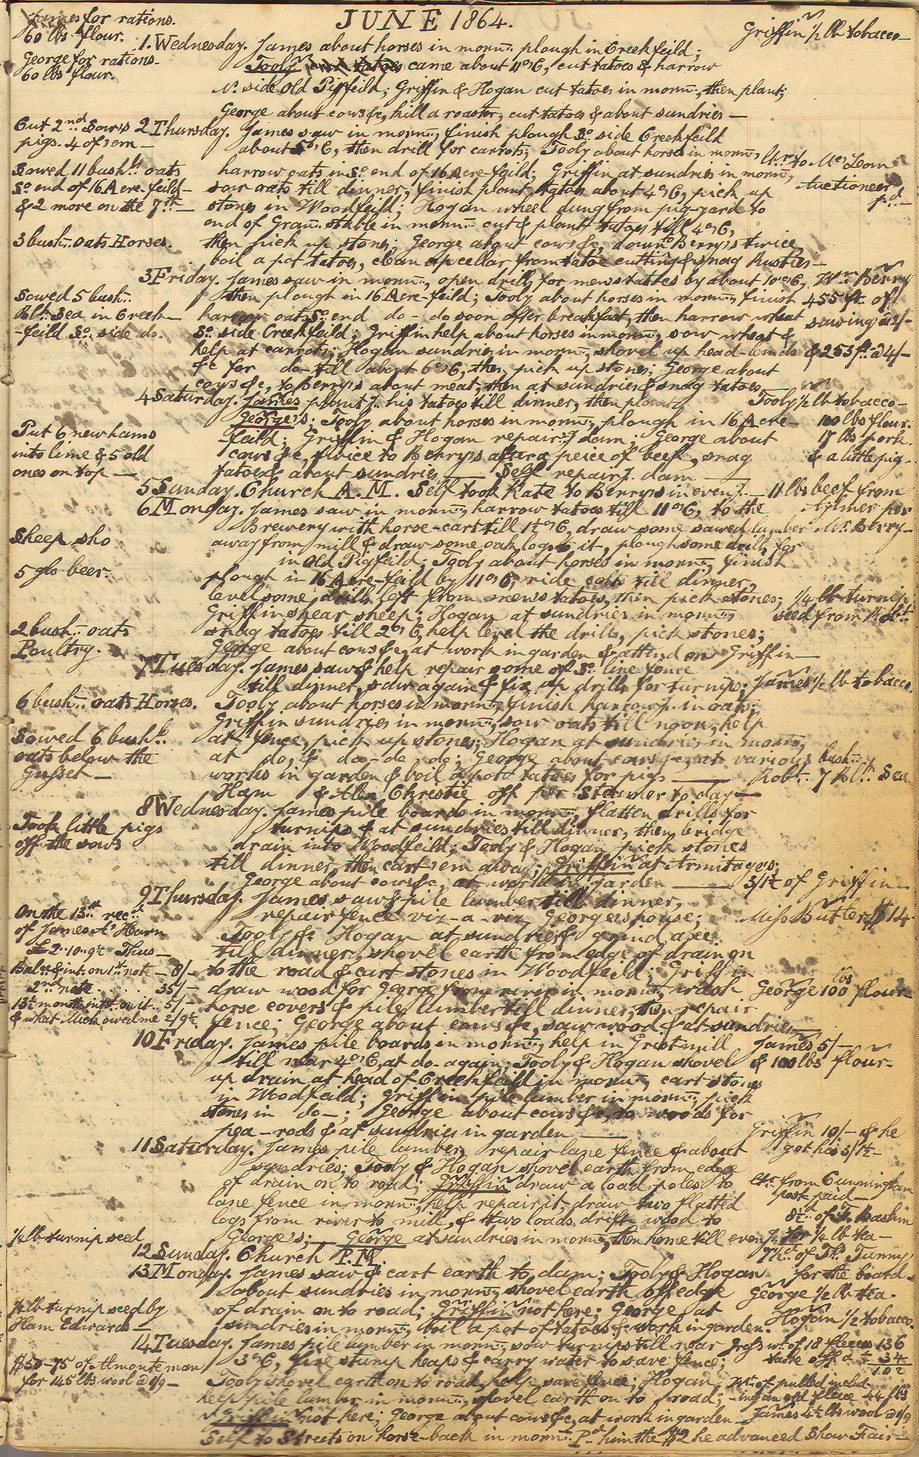 JUNE 1864.
James for rations.
60 lbs. flour.
George for rations.
60 lbs flour.
Griffin ½ lb tobacco
1. Wednesday. James about horses in morn.g, plough in Creekfeild;
Tooly came about 11 o'c, cut tatoes & harrow
N. side Old Pigfeild; Griffin & Hogan cut tatoes in morn.g, then plant;
George about cows &c, kill a roaster, cut tatoes & about sundries —
Cut 2nd Sow's
pigs. 4 of 'em —
2 Thursday. James saw in morn.g, finish plough So. side Creekfeild
about 5 o'c, then drill for carrots; Tooly about horses in morn.g,
Sowed 11 bush.ls oats
So. end of 16 Acre-feild —
& 2 more on the 7th —
harrow oats in So. end of 16 Acre-feild; Griffin at sundries in morn.g,
sow oats till dinner, finish plant about 4 o'c, pick up
stones in Woodfeild; Hogan wheel dung from pig-yard to
end of stable in morn.g cut & plant tatoes till 4 o'c,
3 bush. oats Horses.
then pick up stones; George about cows &c, down to Berry's twice,
boil a pot tatoes, clean up cellar from tatoe cutting & snag
3 Friday. James saw in morn.g, open drills for tatoes by about 10 o'c,
then plough in 16 Acre-feild; Tooly about horses in morn.g, finish
Wm. Berry
455 ft. of
sawing
& 253 ft. @ 4/-
Sowed 5 bush.
Sea in Creek
-feild So. side do.
harrow oats So. end do - do soon after breakfast, then harrow wheat
So. side Creekfeild; Griffin help about horses in morn.g, sow wheat &
help at carrots; Hogan sundries in morn.g, shovel up head-lands
&c for do - till about 6 o'c, then pick up stones; George about
cows &c, to Berry's about meat, then at sundries & snag tatoes —
4 Saturday. James plant.g his tatoes till dinner, then plant
George's; Tooly about horses in morn.g, plough in 16 Acre-
feild; Griffin & Hogan repair.g dam; George about
cows &c, twice to Berry's after a peice of beef, snag
tatoes & about sundries — Self repair.g dam —
Tooly ½ lb tobacco —
100 lbs flour.
17 lbs pork.
& a little pig —
Put 6 new hams
into lime & 5 old
ones on top —
5 Sunday. Church A.M. Self took Kate to Berry's in even.g — 11 lbs beef from
6 Monday. James saw in morn.g, harrow tatoes till 11 o'c, to the
Brewery with horse-cart till 1 o'c, draw some sawed lumber
Mr. Berry —
Sheep sho
away from mill & draw some oak logs to it, plough some drills for
in Old Pigfeild; Tooly about horses in morn.g, finish
5 glo beer.
plough in 16 Acre-feild by 11 o'c, ride colt till dinner,
level some drills left from tatoes, then pick stones;
¼ lb turnip
seed from Rob.t
Griffin shear sheep; Hogan at sundries in morn.g,
snag tatoes till 2 o'c, help level the drills, pick stones;
George about cows &c, at work in garden & attend on Griffin —
2 bush. oats
Poultry.
7 Tuesday. James saw & help repair some of So. line fence
till dinner, saw again & fix up drills for turnips;
James ½ lb tobacco
6 bush. oats Horses.
Tooly about horses in morn.g, finish harrow.g in oats;
Griffin sundries in morn.g, sow oats till noon, help
Sowed 6 bush.ls
oats below the
Gusset —
at fence, pick up stones; Hogan at sundries in morn.g,
at do, & do - do - do; George about cows &c, at various
works in garden & boil a pot tatoes for pigs —
bush.
Rob.t 7 Sea
Ham & Alex Christie off per Steamer to day —
8 Wednesday. James pile boards in morn.g, flatten drills for
turnips & at sundries till dinner, then bridge
Took little pigs
off the sows
drain into Woodfeild; Tooly & Hogan pick stones
till dinner, then cart 'em away; Griffin at Armitage's;
George about cows &c, at work in garden —
3/1½ of Griffin —
9 Thursday. James saw & pile lumber till dinner,
repair fence viz-a-viz George's house;
Miss Butler $14
On the 13th rec.d
of James
£2.10.9½ Thus —
Bal. & int. on 1st note — 8/-
2nd note . . . . 35/-
13 months int. on it — 5/-
& what Mick owed me 2/9½
Tooly & Hogan at sundries & grind axe
till dinner, shovel earth from edge of drain on
to the road & cart stones in Woodfeild; Griffin
draw wood for George from river in morn.g, wash
George 100 lbs flour
horse covers & pile lumber till dinner, then repair
fence; George about cows &c, saw wood & at sundries —
10 Friday. James pile boards in morn.g, help in Gristmill
till near 4 o'c, at do - again; Tooly & Hogan shovel
James 5/-
& 100 lbs flour —
up drain at head of Creekfeild in morn.g, cart stones
in Woodfeild; Griffin pile lumber in morn.g, pick
stones in do —; George about cows &c, to woods for
pea-rods & at sundries in garden —
Griffin 10/- & he
got his 3/1½ —
11 Saturday. James pile lumber, repair lane fence & about
sundries; Tooly & Hogan shovel earth from edge
of drain on to road; Griffin draw a load poles to
lane fence in morn.g, help repair it, draw two flatted
logs from river to mill, & two loads drift wood to
George's; George at sundries in morn.g, then home till even.g
from Cunningham
post paid —
for ½ lb tea —
½ lb turnip seed
12 Sunday. Church P.M.
13 Monday. James saw & cart earth to dam; Tooly & Hogan
for the board.
about sundries in morn.g, shovel earth off edge
George ½ lb tea.
½ lb turnip seed by
Ham Edwards —
of drain on to road; Griffin not here; George at
sundries in morn.g, boil a pot of tatoes & work in garden.
Hogan ½ tobacco.
14 Tuesday. James pile lumber in morn.g, sow turnips till near
3 o'c, fire stump heaps & carry water to save fence;
Gross wt. of 18 fleeces 136
take off 34
102
$50-75 of Almonte man
for 145 lbs wool @ 1/9 —
Tooly shovel earth on to road, help save fence; Hogan
help pile lumber in morn.g, shovel earth on to road;
Wt. of pulled includ
-ing an old fleece 44 lbs
Griffin not here; George about cows &c, at work in garden —
James 4½ lbs wool @ 1/9
Self to Streets on horse-back in morn.g P.d him the $2 he advanced Show Fair —